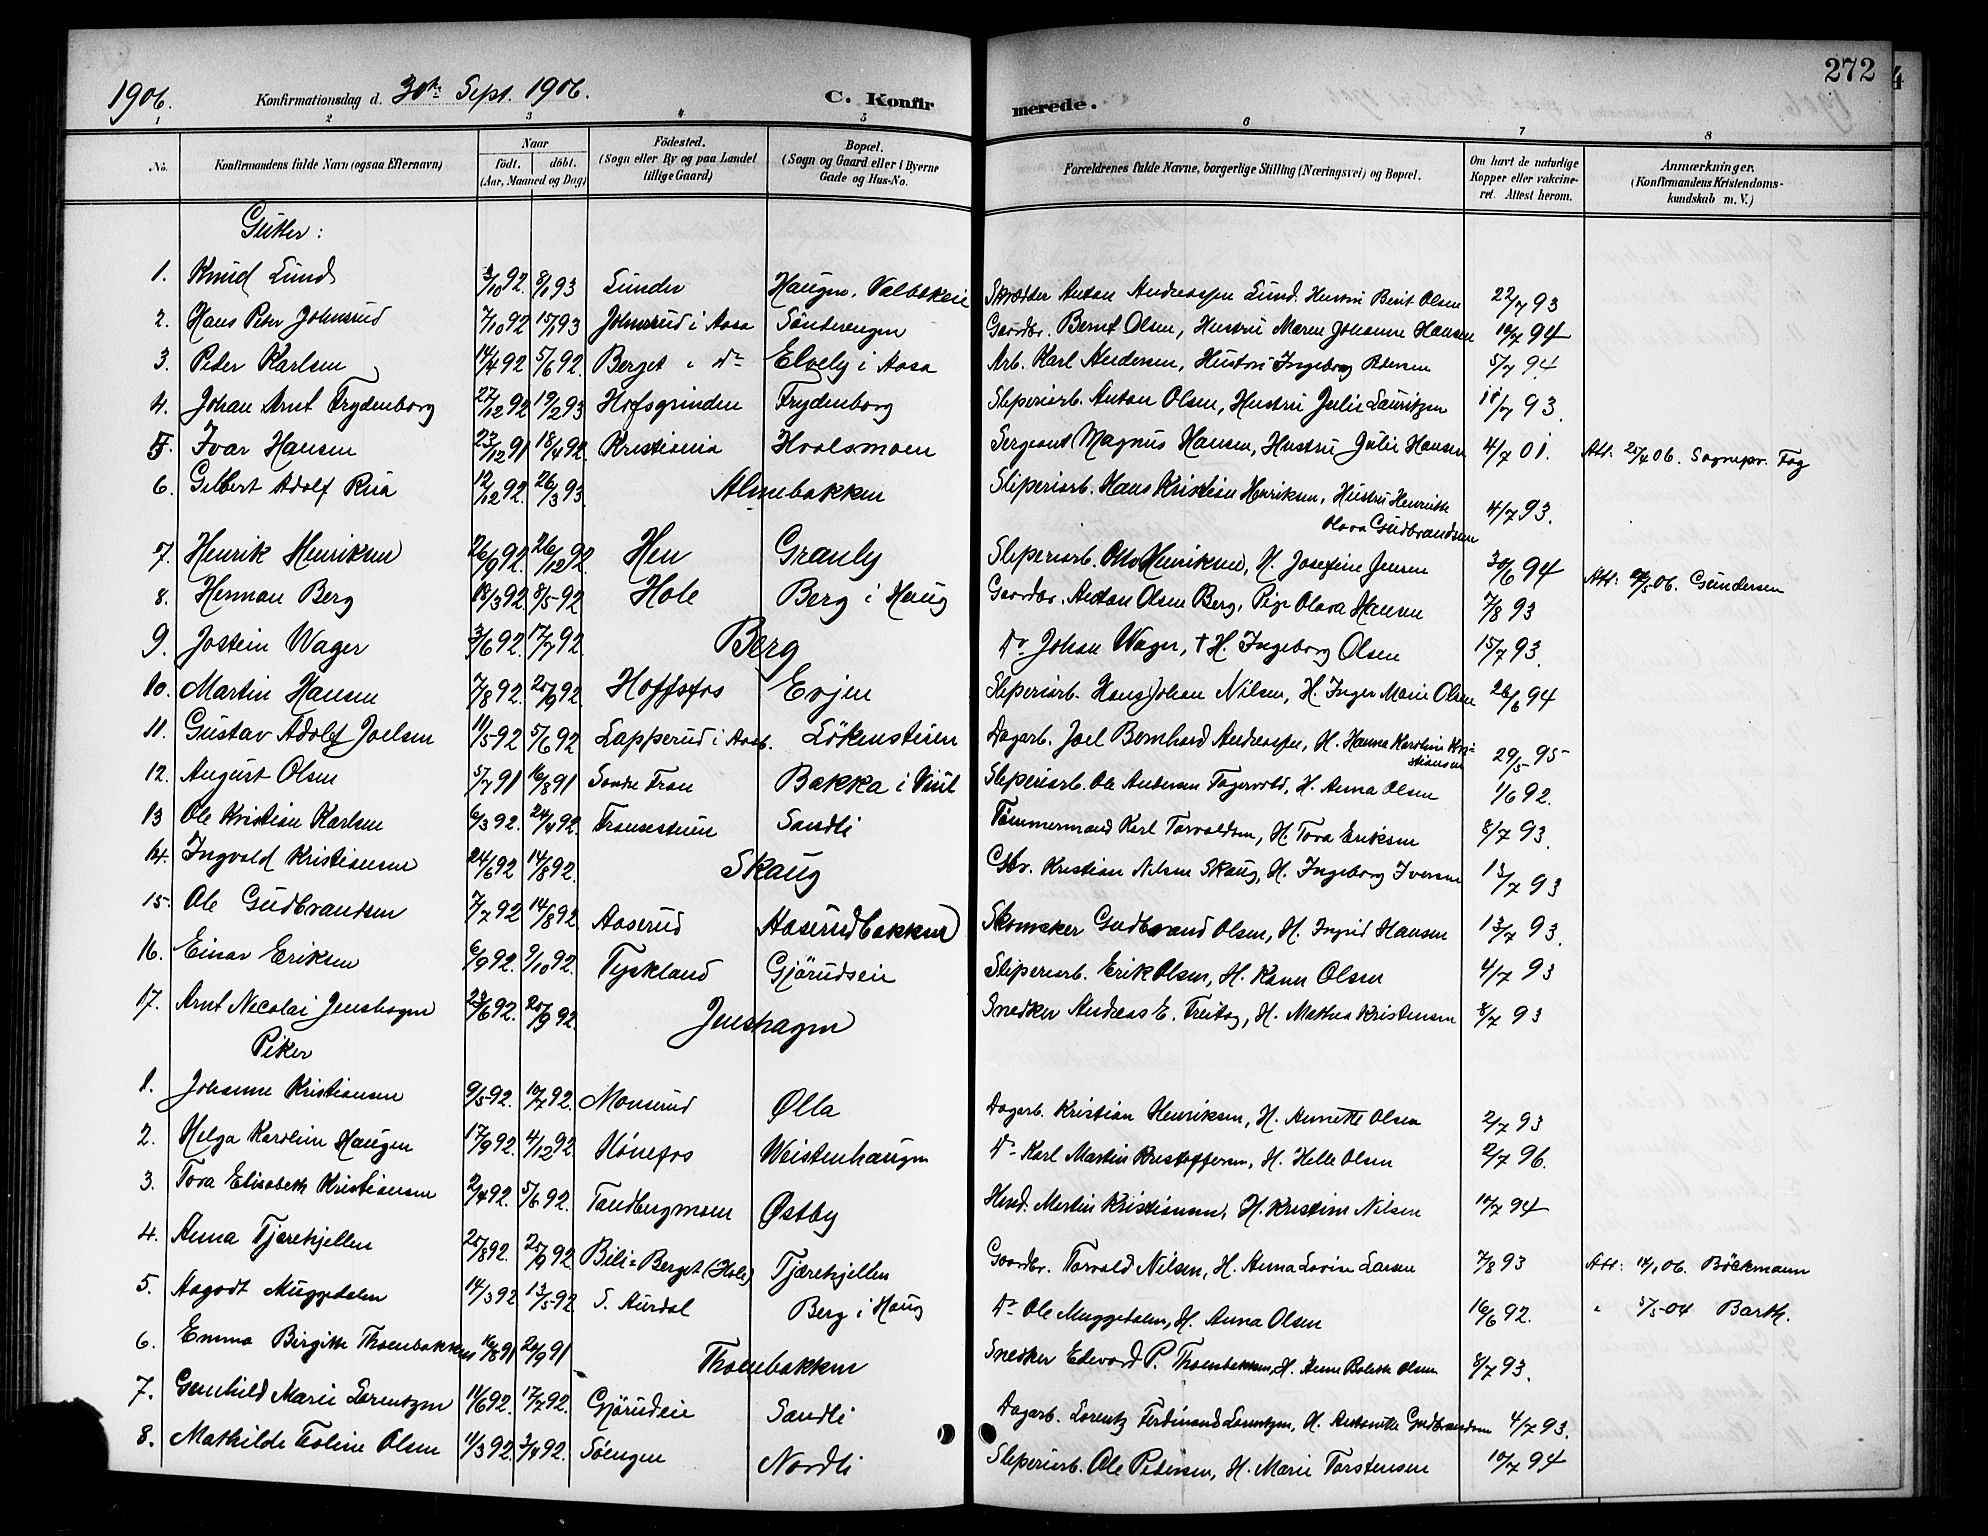 272
1906. Konfirmationsdag d. 30te Sept. 1906. C. Konfirmerede.
1 2 3 4 5 6 7 8
No. Konfirmandens fulde Navn (ogsaa Efternavn) Naar født. døbt. (Aar, Maaned og Dag) Fødested. (Sogn eller By og paa Landet tillige Gaard) Bopæl. (Sogn og Gaard eller i Byerne Gade og Hus-No. Forældrenes fulde Navne, borgerlige Stilling (Næringsvei) og Bopæl. Om havt de naturlige Kopper eller vakcineret. Attest herom. Anmærkninger. (Konfirmandens Kristendomskundskab m. V.)
Gutter:
1. Knud Lund 3/10 92. 8/1 93 Lunder Haugen, Skrædder Anton Andreassen Lund. Hustru Berit Olsen 22/7 93
2. Hans Peter Johnsrud 7/10 92 15/1 93 Johnsrud i Aasa Sönderengen Gaardbr. Bernt Olsen, Hustru Maren Johanne Hansen 10/7 94
3. Peter Karlsen 14/4 92 5/6 92. Berget " do Elvely i Aasa Arb. Karl Andersen, Hustru Ingeborg Pedersen 5/7 94.
4. Johan Arnt Frydenborg 27/12 92 19/2 93 Hofsgrinden Frydenborg Sliperiarb. Anton Olsen, Hustru Julie Lauritzen 18/7 93.
5. Ivar Hansen 23/12 91 18/4 92. Kristiania Hvalsmoen Sergeant Magnus Hansen, Hustru Julie Hansen 4/7 01. Att: 20/4 06. Sognepr. Fog
6. Gilbert Adolf Rua 12/12 92. 26/3 93. Almebakken Sliperiarb. Hans Kristian Henriksen, Hustru Henriette Olava Gudbrandsen 4/7 93.
7. Henrik Henriksen 26/9 92. 26/12 92. Hen Granly Sliperiarb. Otto Henriksen, H. Josefine Jensen 30/6 94
8. Herman Berg 18/3 92. 8/5 92 Hole Berg i Haug Gaardbr. Anton Olsen Berg, Pige Olava Hansen 7/8 93 Att: 06. Gundersen
9. Jostein Wager 3/6 92. 17/7 92. Berg do Johan Wager, † H. Ingeborg Olsen 15/7 93.
10. Martin Hansen 7/8 92. 20/9 92. Hoffsfos Evjen Sliperiarb. Hans Johan Nilsen, H. Inger Marie Olsen 26/6 94
11. Gustav Adolf Joelsen 11/5 92 5/6 92 Lapperud i Aasa. Lökensteien Dagarb. Joel Bernhard Andreassen, H. Hanna Karoline Kristiansen 29/5 95
12. August Olsen 5/7 91 16/8 91 Søndre Fron Bakka i Viul Sliperiarb. Ole Andersen Fagervold, H. Anna Olsen 1/6 92.
13 Ole Kristian Karlsen 6/3 92. 24/4 92. Sandli Tømmermand Karl Torvaldsen, H. Tora Eriksen 8/7 93.
14. Ingvald Kristiansen 24/6 92 14/8 92. Skaug Gbr. Kristian Nilsen Skaug, H. Ingeborg Iversen 13/7 93
15. Ole Gudbrandsen 7/7 92 14/8 92. Aaserud Aaserudbakken Skomaker Gudbrand Olsen, H. Ingrid Hansen 13/7 93.
16. Einar Eriksen 6/9 92. 9/10 92. Tyskland Gjörudseie Sliperiarb. Erik Olsen, H. Karen Olsen 4/7 93
17. Arnt Nicolai Jenshagen 23/6 92. 20/9 92. Jenshagen Snedker Andreas E. Freitag, H. Mathea Kristensen 8/7 93
Piker
1. Johanne Kristiansen 9/5 92. 10/7 92. Monserud Ølla Dagarb. Kristian Henriksen, H. Annette Olsen 2/7 93
2. Helga Karoline Haugen 17/9 92. 4/12 92 Hönefos Weistenhaugen do Karl Martin Kristoffersen, H. Helle Olsen 2/7 96.
3. Tora Elisabeth Kristiansen 2/4 92. 5/6 92. Tandbergmoen Østby Hand. Martin Kristiansen, H. Kristine Nilsen 10/7 94
4. Anna Tjærehjellen 20/8 92. 20/9 92. Bili-Berget (Hole) Tjærehjellen Gaardbr. Torvald Nilsen, H. Anna Lovise Larsen 7/8 93 Att: 06. Böckmann
5. Aagodt Muggedalen 14/3 92 13/5 92 S. Aurdal Berg i Haug do Ole Muggedalen, H. Anna Olsen 16/6 92. " 5/5 04 Barth.
6. Emma Birgitte Thoenbakken 16/8 91 20/9 91 Thoenbakken Snedker Edvard P. Thoenbakken, H. Anne Bolette Olsen 8/7 93.
7. Gunhild Marie Lorentzen 11/6 92. 17/7 92. Gjörudseie Sandli Dagarb. Lorentz Ferdinand Lorentzen, H. Antonette Gudbrandsen 4/7 93.
8. Mathilde Eoline Olsen 11/3 92. 3/4 92. Töengen Nordli Sliperiarb. Ole Pedersen, H. Marie Torstensen 10/7 94